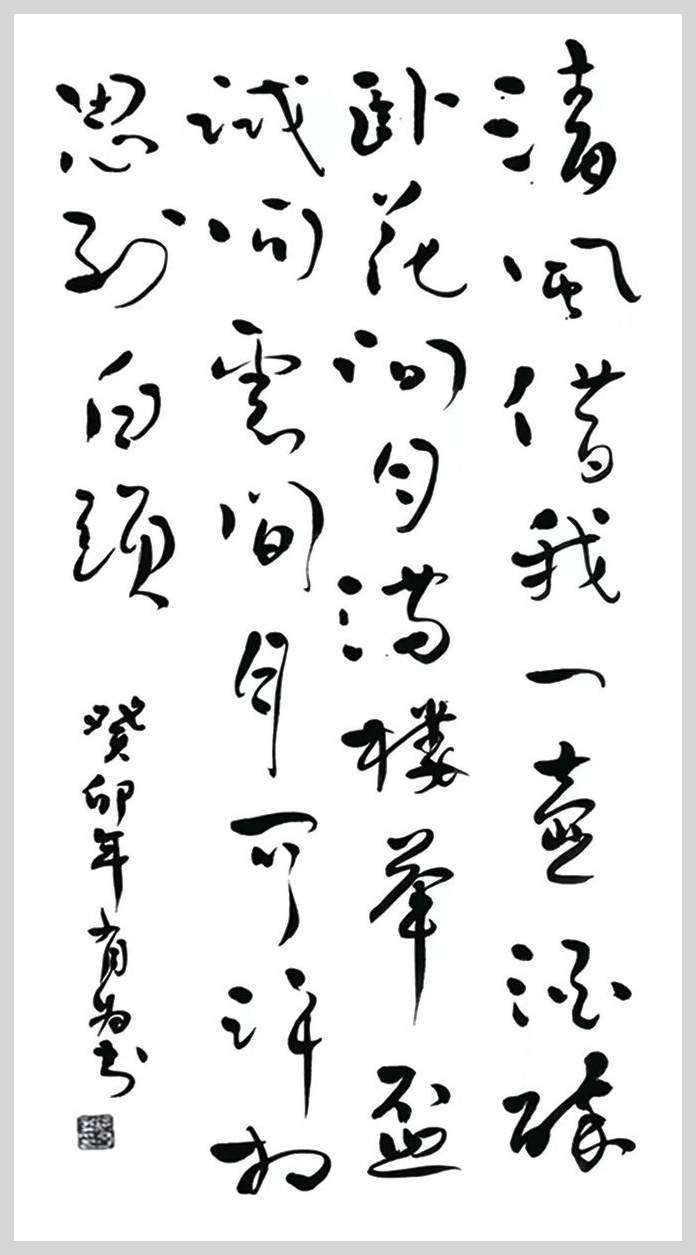 清风借我一壶酒醉
卧花间月满楼举杯
试问云间月可许相
思到白头
癸卯年肖为书